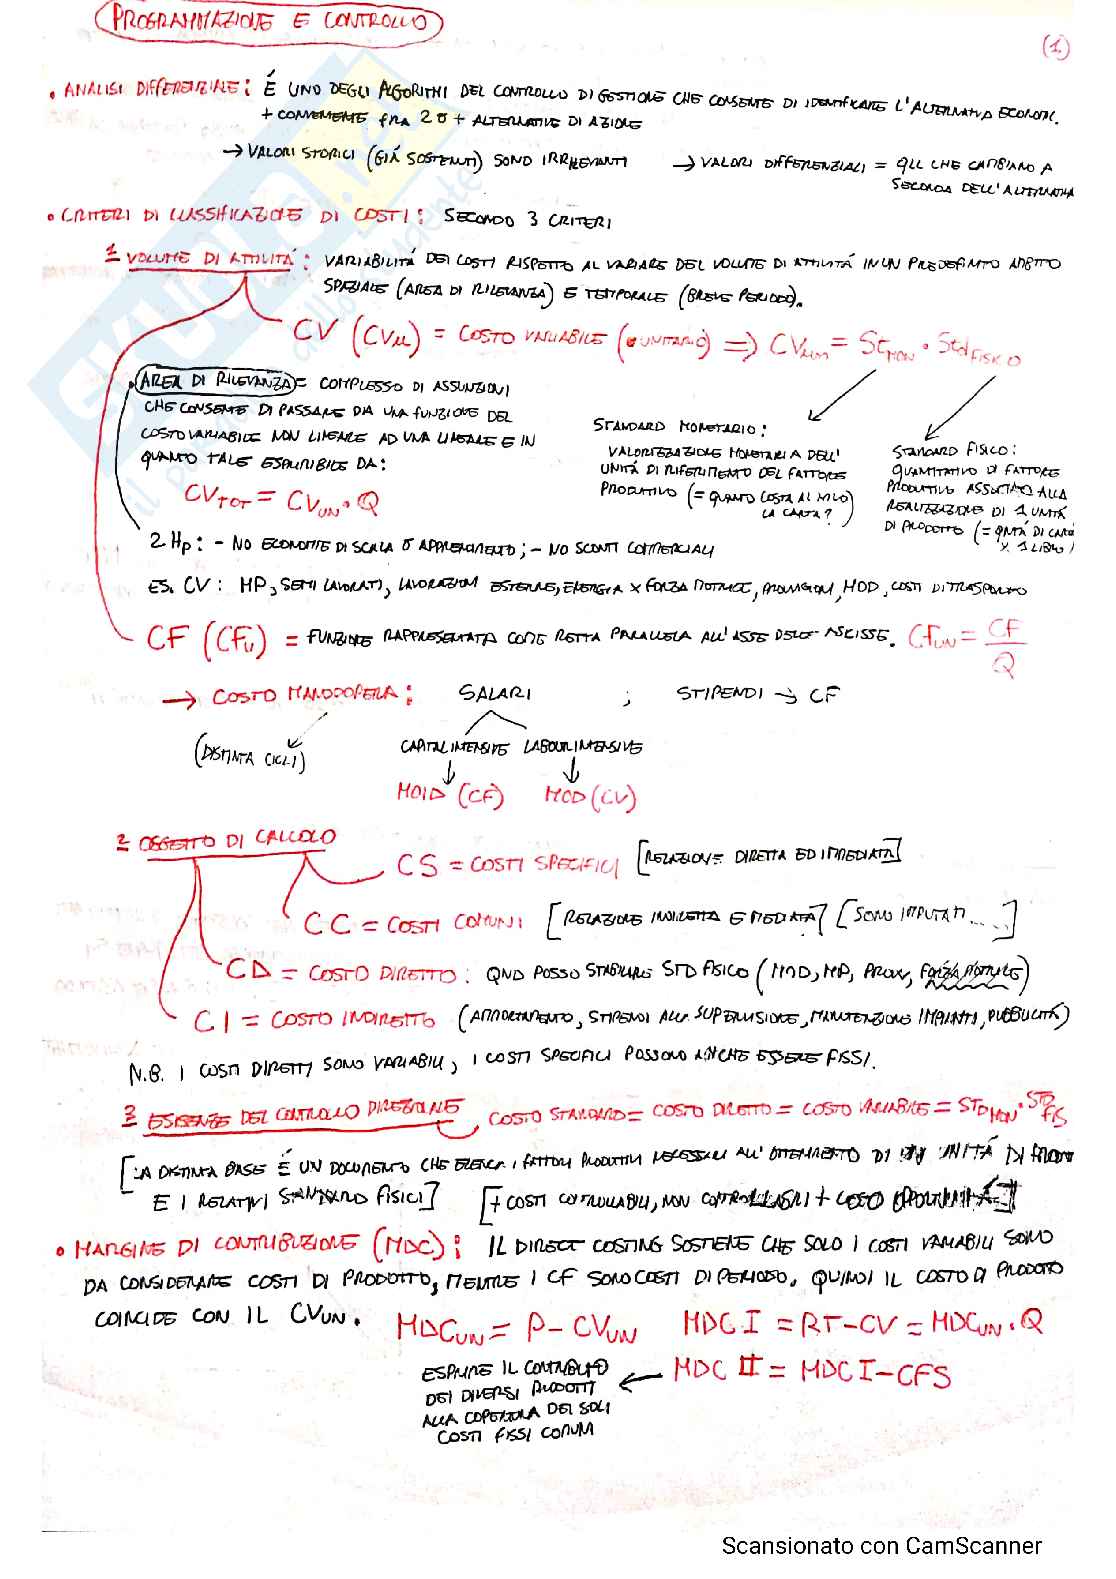 PROGRAMMAZIONE E CONTROLLO
(1)
• ANALISI DIFFERENZIALE: É UNO DEGLI ALGORITMI DEL CONTROLLO DI GESTIONE CHE CONSENTE DI IDENTIFICARE L'ALTERNATIVA ECONOM.
+ CONVENIENTE FRA 2 O + ALTERNATIVE DI AZIONE
→ VALORI STORICI (GIÁ SOSTENUTI) SONO IRRILEVANTI → VALORI DIFFERENZIALI = QLL CHE CAMBIANO A
SECONDA DELL'ALTERNATIVA
• CRITERI DI CLASSIFICAZIONE DI COSTI: SECONDO 3 CRITERI
1 VOLUME DI ATTIVITÁ: VARIABILITÁ DEI COSTI RISPETTO AL VARIARE DEL VOLUME DI ATTIVITÁ IN UN PREDEFINITO AMBITO
SPAZIALE (AREA DI RILEVANZA) E TEMPORALE (BREVE PERIODO).
CV (CVu) = COSTO VARIABILE (UNITARIO) => CVUN = StMON · StdFISICO
• AREA DI RILEVANZA = COMPLESSO DI ASSUNZIONI
CHE CONSENTE DI PASSARE DA UNA FUNZIONE DEL
COSTO VARIABILE NON LINEARE AD UNA LINEARE E IN
QUANTO TALE ESPRIMIBILE DA:
CVTOT = CVUN · Q
STANDARD MONETARIO:
VALORIZZAZIONE MONETARIA DELL'
UNITÁ DI RIFERIMENTO DEL FATTORE
PRODUTTIVO (= QUANTO COSTA AL KILO
LA CARTA?)
STANDARD FISICO:
QUANTITATIVO DI FATTORE
PRODUTTIVO ASSOCIATO ALLA
REALIZZAZIONE DI 1 UNITÁ
DI PRODOTTO (= QNTÁ DI CARTA
X 1 LIBRO)
2 Hp: - NO ECONOMIE DI SCALA O APPRENDIMENTO; - NO SCONTI COMMERCIALI
ES. CV: MP, SEMILAVORATI, LAVORAZIONI ESTERNE, ENERGIA X FORZA MOTRICE, PROVVIGIONI, MOD, COSTI DI TRASPORTO
CF (CFu) = FUNZIONE RAPPRESENTATA COME RETTA PARALLELA ALL'ASSE DELLE ASCISSE. CFUN = CF
Q
→ COSTO MANODOPERA: SALARI ; STIPENDI → CF
(DISTINTA CICLI) CAPITAL INTENSIVE LABOUR INTENSIVE
MOID (CF) MOD (CV)
2 OGGETTO DI CALCOLO
CS = COSTI SPECIFICI [RELAZIONE DIRETTA ED IMMEDIATA]
CC = COSTI COMUNI [RELAZIONE INDIRETTA E MEDIATA] [SONO IMPUTATI ....]
CD = COSTO DIRETTO: QND POSSO STABILIRE STD FISICO (MOD, MP, PROVV, FORZA MOTRICE)
CI = COSTO INDIRETTO (AMMORTAMENTO, STIPENDI ALLA SUPERVISIONE, MANUTENZIONE IMPIANTI, PUBBLICITÁ)
N.B. I COSTI DIRETTI SONO VARIABILI, I COSTI SPECIFICI POSSONO ANCHE ESSERE FISSI.
3 ESIGENZE DEL CONTROLLO DIREZIONALE COSTO STANDARD = COSTO DIRETTO = COSTO VARIABILE = STDMON · STDFIS
[LA DISTINTA BASE É UN DOCUMENTO CHE ELENCA I FATTORI PRODUTTIVI NECESSARI ALL'OTTENIMENTO DI UN UNITÁ DI PRODOTTO
E I RELATIVI STANDARD FISICI] [+ COSTI CONTROLLABILI, NON CONTROLLABILI + COSTO OPPORTUNITÁ]
• MARGINE DI CONTRIBUZIONE (MDC): IL DIRECT COSTING SOSTIENE CHE SOLO I COSTI VARIABILI SONO
DA CONSIDERARE COSTI DI PRODOTTO, MENTRE I CF SONO COSTI DI PERIODO. QUINDI IL COSTO DI PRODOTTO
COINCIDE CON IL CVUN.
MDCUN = P - CVUN MDC I = RT - CV = MDCUN · Q
MDC II = MDC I - CFS
ESPRIME IL CONTRIBUTO
DEI DIVERSI PRODOTTI
ALLA COPERTURA DEI SOLI
COSTI FISSI COMUNI
Scansionato con CamScanner